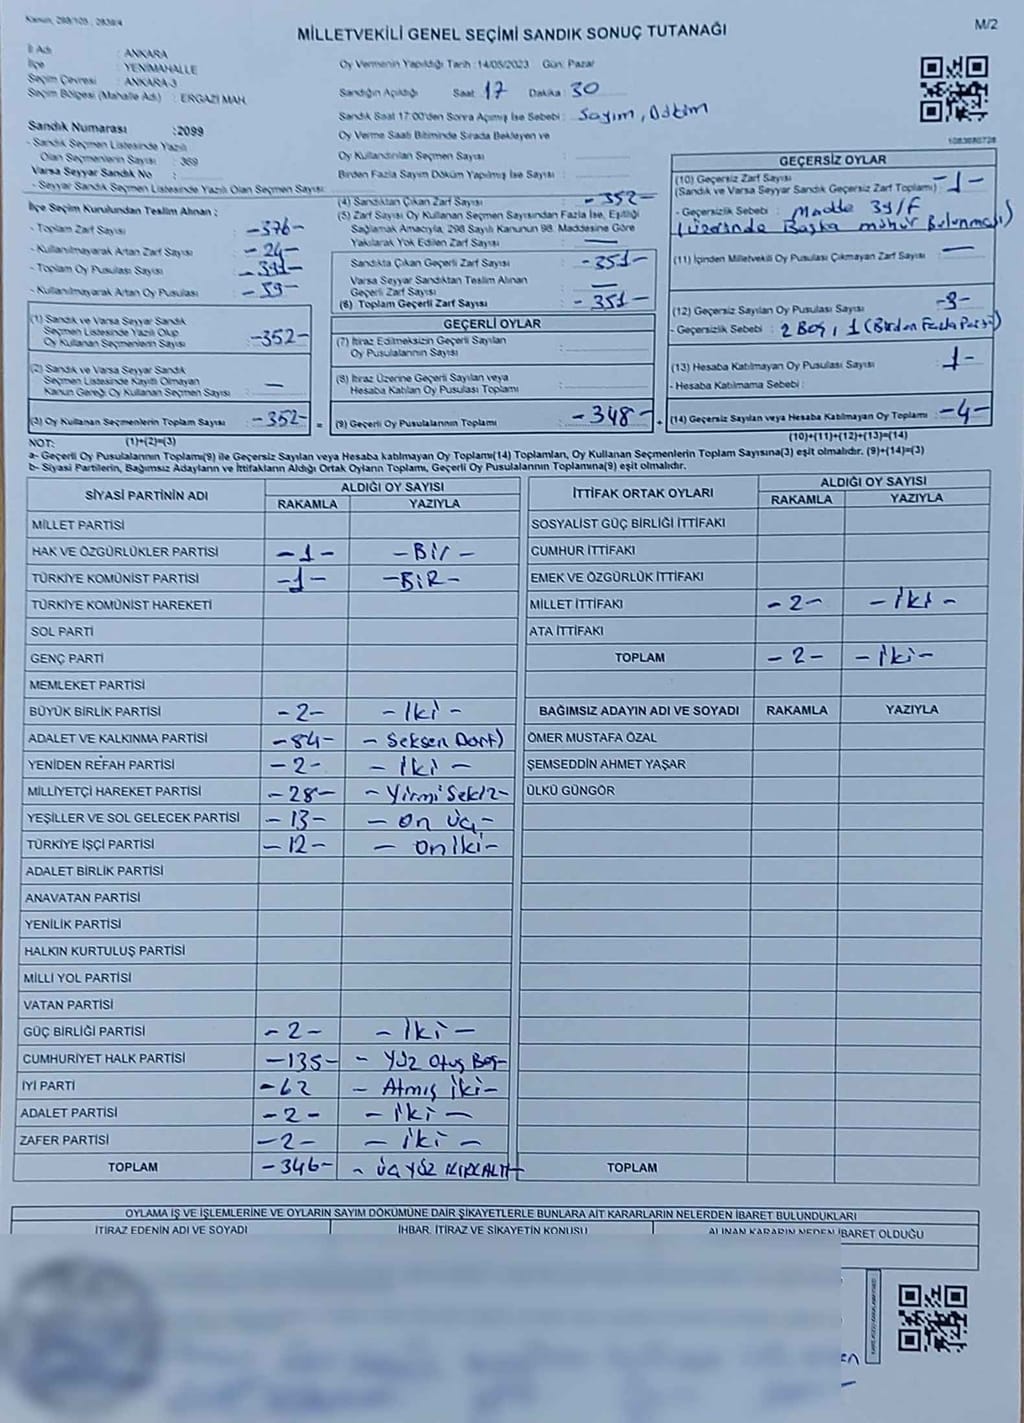 Kanun, 298/105 ; 2839/4
MİLLETVEKİLİ GENEL SEÇİMİ SANDIK SONUÇ TUTANAĞI
M/2
İl Adı : ANKARA
İlçe : YENİMAHALLE
Seçim Çevresi : ANKARA-3
Seçim Bölgesi (Mahalle Adı) : ERGAZİ MAH.
Sandık Numarası :2099
- Sandık Seçmen Listesinde Yazılı
Olan Seçmenlerin Sayısı : 369
Varsa Seyyar Sandık No :
- Seyyar Sandık Seçmen Listesinde Yazılı Olan Seçmen Sayısı:
Oy Vermenin Yapıldığı Tarih :14/05/2023 Gün: Pazar
Sandığın Açıldığı Saat 17 Dakika : 30
Sandık Saat 17:00'den Sonra Açılmış İse Sebebi : Sayım, Döküm
Oy Verme Saati Bitiminde Sırada Bekleyen ve
Oy Kullandırılan Seçmen Sayısı :
Birden Fazla Sayım Döküm Yapılmış İse Sayısı :
İlçe Seçim Kurulundan Teslim Alınan :
- Toplam Zarf Sayısı : -376-
- Kullanılmayarak Artan Zarf Sayısı : -24-
- Toplam Oy Pusulası Sayısı :
- Kullanılmayarak Artan Oy Pusulası : -39-
(1) Sandık ve Varsa Seyyar Sandık
Seçmen Listesinde Yazılı Olup
Oy Kullanan Seçmenlerin Sayısı : -352-
(2) Sandık ve Varsa Seyyar Sandık
Seçmen Listesinde Kayıtlı Olmayan
Kanun Gereği Oy Kullanan Seçmen Sayısı : —
(3) Oy Kullanan Seçmenlerin Toplam Sayısı : -352-
(4) Sandıktan Çıkan Zarf Sayısı : -352-
(5) Zarf Sayısı Oy Kullanan Seçmen Sayısından Fazla İse, Eşitliği
Sağlamak Amacıyla, 298 Sayılı Kanunun 98. Maddesine Göre
Yakılarak Yok Edilen Zarf Sayısı : —
Sandıkta Çıkan Geçerli Zarf Sayısı : -351-
Varsa Seyyar Sandıktan Teslim Alınan
Geçerli Zarf Sayısı : —
(6) Toplam Geçerli Zarf Sayısı : -351-
GEÇERLİ OYLAR
(7) İtiraz Edilmeksizin Geçerli Sayılan
Oy Pusulalarının Sayısı :
(8) İtiraz Üzerine Geçerli Sayılan veya
Hesaba Katılan Oy Pusulası Toplamı :
= (9) Geçerli Oy Pusulalarının Toplamı : -348-
GEÇERSİZ OYLAR
(10) Geçersiz Zarf Sayısı
(Sandık ve Varsa Seyyar Sandık Geçersiz Zarf Toplamı) : -1-
- Geçersizlik Sebebi : Madde 39/F
(üzerinde Başka mühür Bulunması)
(11) İçinden Milletvekili Oy Pusulası Çıkmayan Zarf Sayısı : —
(12) Geçersiz Sayılan Oy Pusulası Sayısı : -3-
- Geçersizlik Sebebi : 2 Boş, 1 (Birden Fazla Parti)
(13) Hesaba Katılmayan Oy Pusulası Sayısı : 1-
- Hesaba Katılmama Sebebi :
+ (14) Geçersiz Sayılan veya Hesaba Katılmayan Oy Toplamı : -4-
NOT: (1)+(2)=(3) (10)+(11)+(12)+(13)=(14)
a- Geçerli Oy Pusulalarının Toplamı(9) ile Geçersiz Sayılan veya Hesaba katılmayan Oy Toplamı(14) Toplamları, Oy Kullanan Seçmenlerin Toplam Sayısına(3) eşit olmalıdır. (9)+(14)=(3)
b- Siyasi Partilerin, Bağımsız Adayların ve İttifakların Aldığı Ortak Oyların Toplamı, Geçerli Oy Pusulalarının Toplamına(9) eşit olmalıdır.
SİYASİ PARTİNİN ADI ALDIĞI OY SAYISI
RAKAMLA YAZIYLA
MİLLET PARTİSİ
HAK VE ÖZGÜRLÜKLER PARTİSİ -1- -Bir-
TÜRKİYE KOMÜNİST PARTİSİ -1- -BİR-
TÜRKİYE KOMÜNİST HAREKETİ
SOL PARTİ
GENÇ PARTİ
MEMLEKET PARTİSİ
BÜYÜK BİRLİK PARTİSİ -2- -İki-
ADALET VE KALKINMA PARTİSİ -84- -Seksen Dört)
YENİDEN REFAH PARTİSİ -2- -İki-
MİLLİYETÇİ HAREKET PARTİSİ -28- -Yirmi Sekiz-
YEŞİLLER VE SOL GELECEK PARTİSİ -13- -On üç-
TÜRKİYE İŞÇİ PARTİSİ -12- -On iki-
ADALET BİRLİK PARTİSİ
ANAVATAN PARTİSİ
YENİLİK PARTİSİ
HALKIN KURTULUŞ PARTİSİ
MİLLİ YOL PARTİSİ
VATAN PARTİSİ
GÜÇ BİRLİĞİ PARTİSİ -2- -İki-
CUMHURİYET HALK PARTİSİ -135- -Yüz Otuz Beş-
İYİ PARTİ -62 -Atmış iki-
ADALET PARTİSİ -2- -iki-
ZAFER PARTİSİ -2- -iki-
TOPLAM -346- -ÜÇ YÜZ KIRKALTI
İTTİFAK ORTAK OYLARI ALDIĞI OY SAYISI
RAKAMLA YAZIYLA
SOSYALİST GÜÇ BİRLİĞİ İTTİFAKI
CUMHUR İTTİFAKI
EMEK VE ÖZGÜRLÜK İTTİFAKI
MİLLET İTTİFAKI -2- -iki-
ATA İTTİFAKI
TOPLAM -2- -iki-
BAĞIMSIZ ADAYIN ADI VE SOYADI RAKAMLA YAZIYLA
ÖMER MUSTAFA ÖZAL
ŞEMSEDDİN AHMET YAŞAR
ÜLKÜ GÜNGÖR
TOPLAM
OYLAMA İŞ VE İŞLEMLERİNE VE OYLARIN SAYIM DÖKÜMÜNE DAİR ŞİKAYETLERLE BUNLARA AİT KARARLARIN NELERDEN İBARET BULUNDUKLARI
İTİRAZ EDENİN ADI VE SOYADI İHBAR, İTİRAZ VE ŞİKAYETİN KONUSU ALINAN KARARIN NEDEN İBARET OLDUĞU